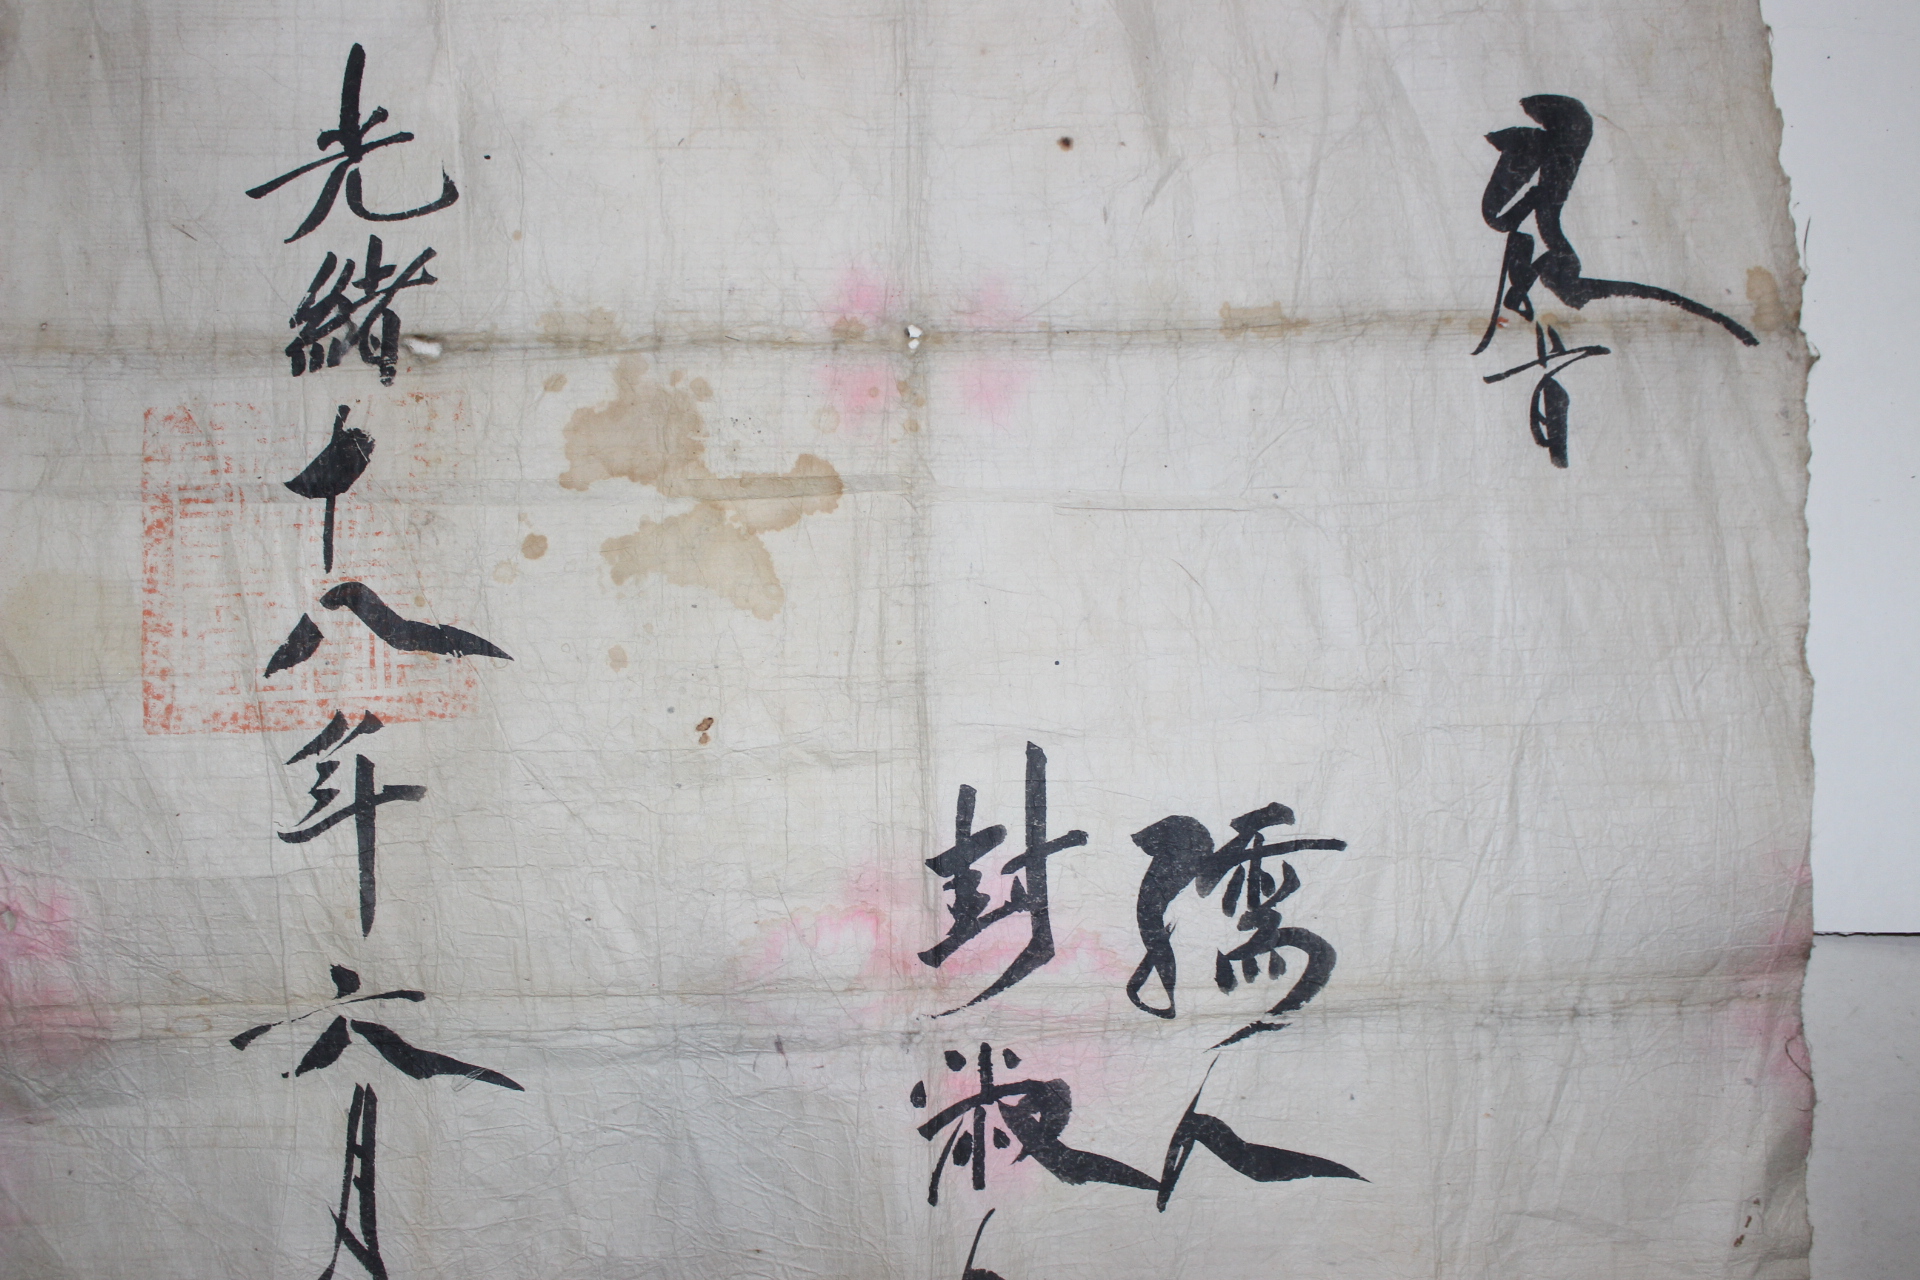 敎旨
孺人
封淑人
光緖十八年六月